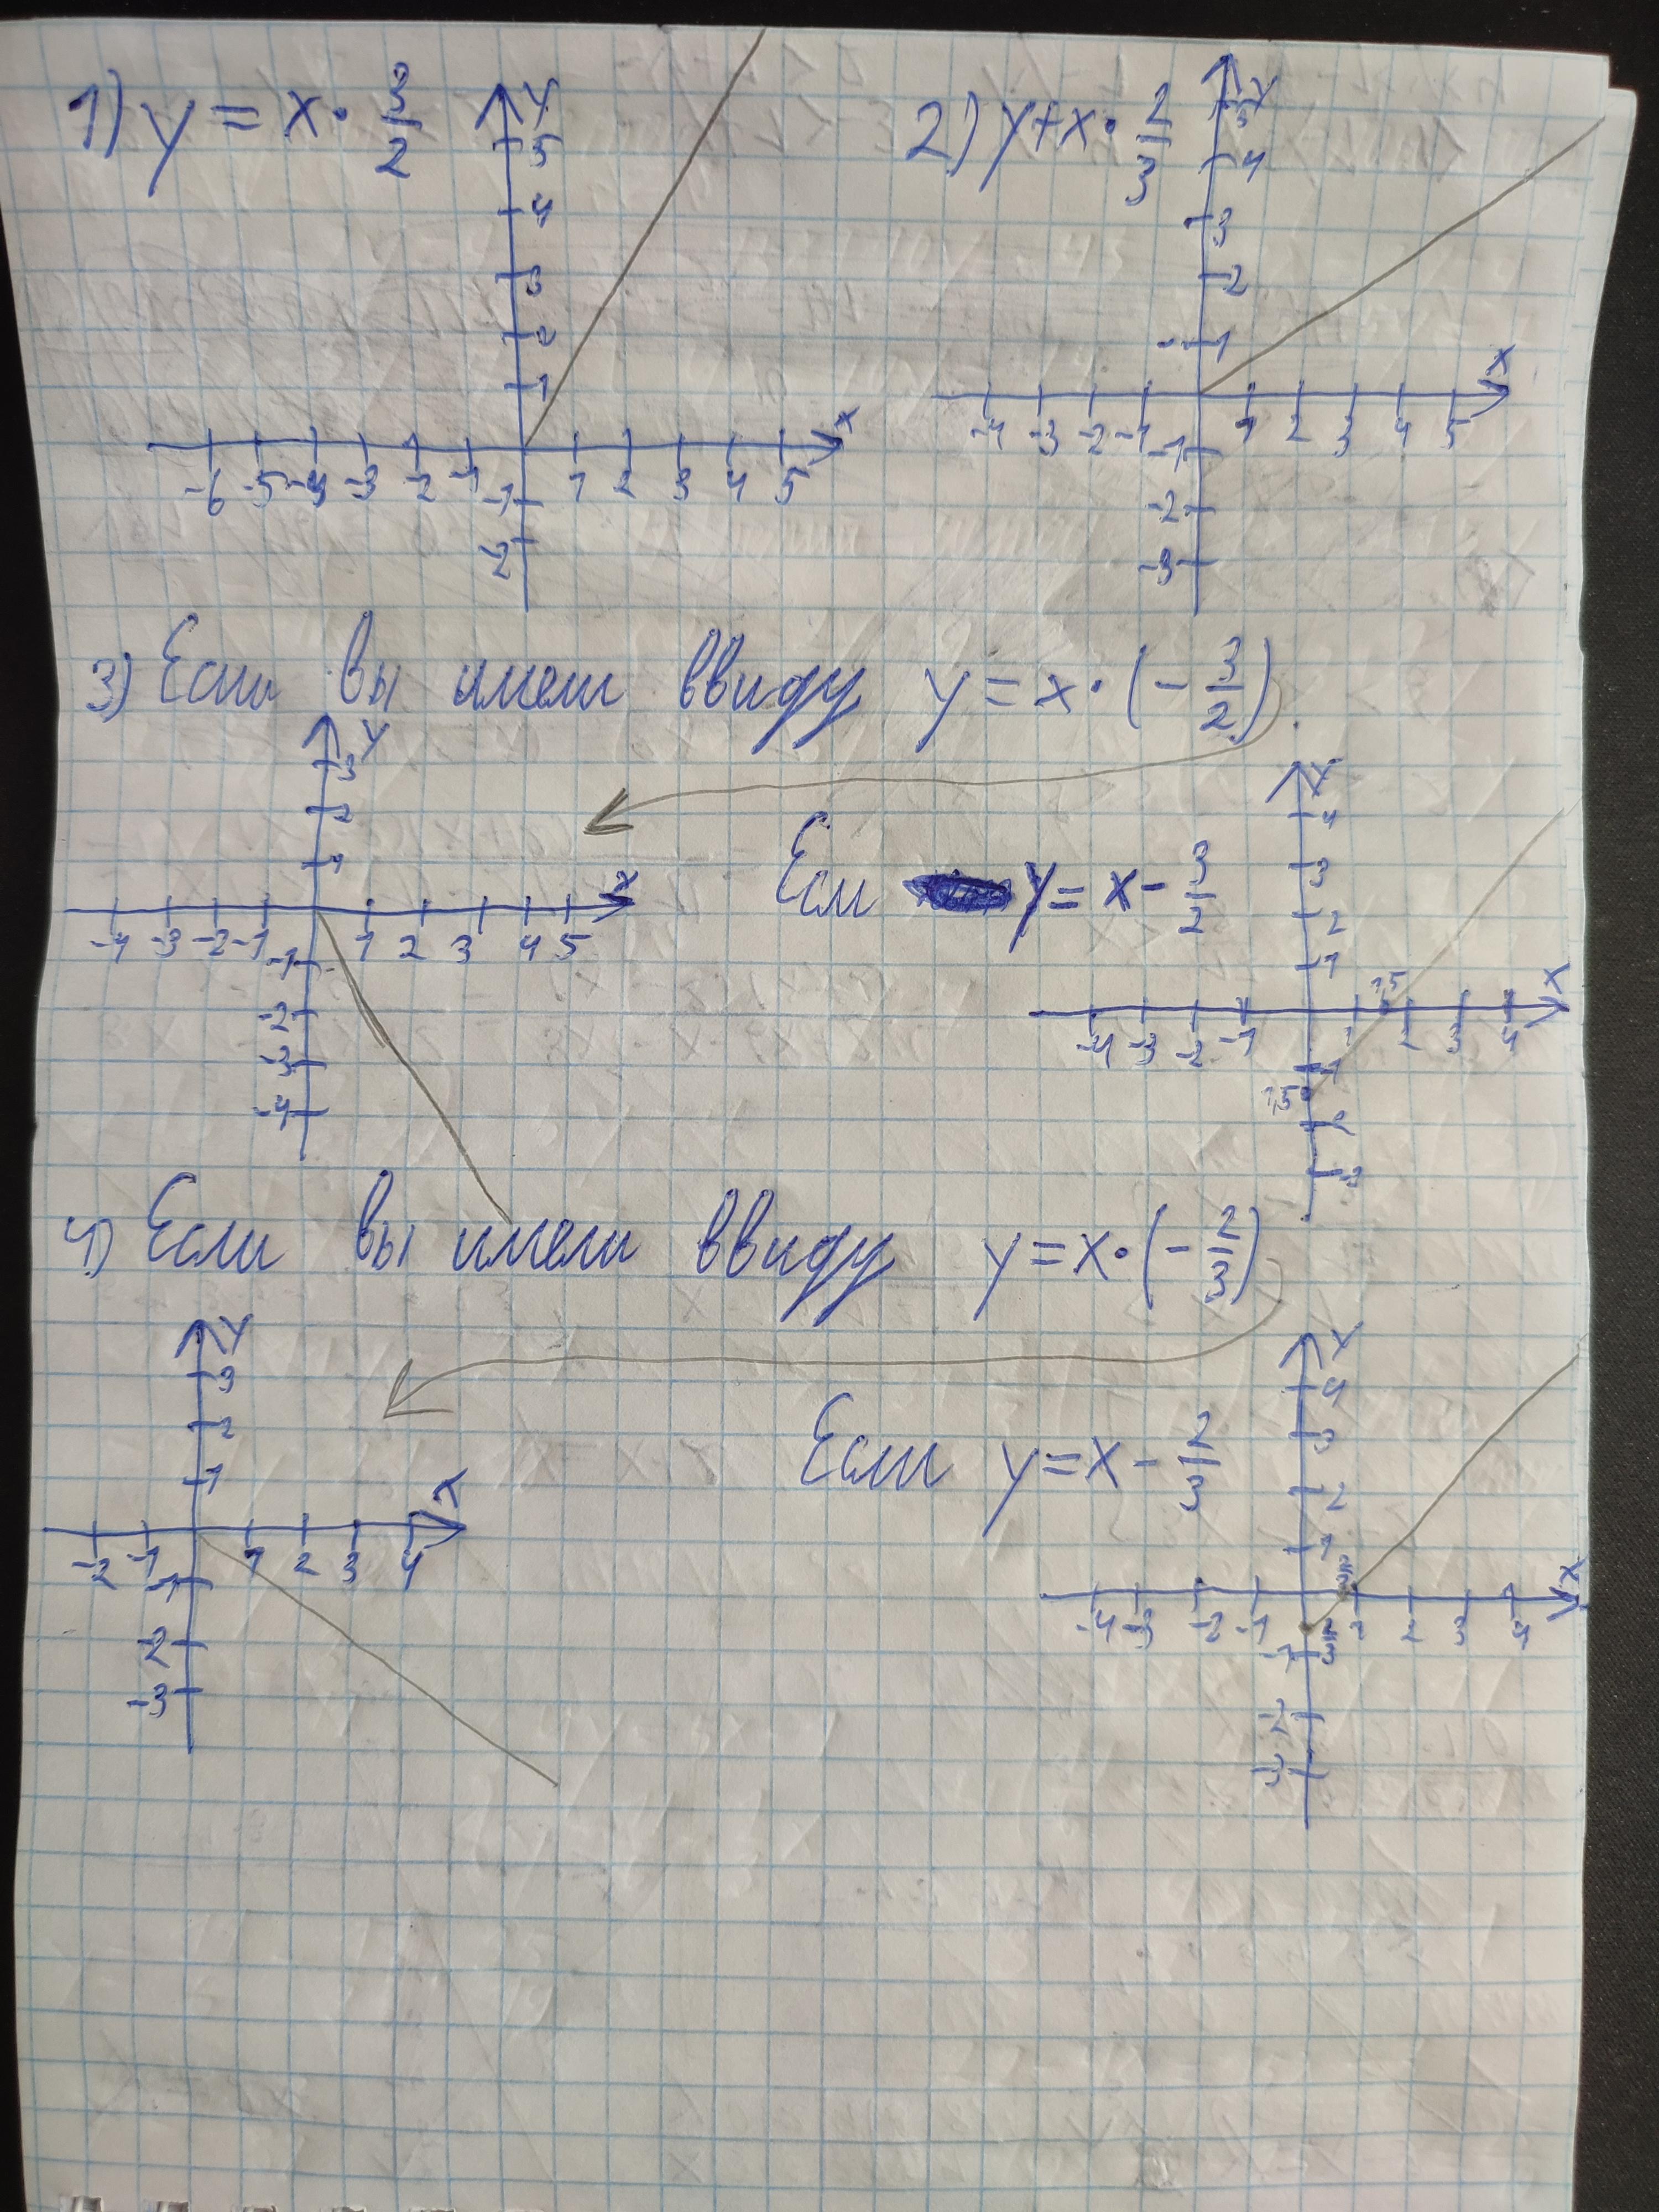 1) y = x · 3/2
y
5
4
3
2
1
x
-6 -5 -4 -3 -2 -1 1 2 3 4 5
-1
-2
2) y+x · 2/3
y
5
4
3
2
1
x
-4 -3 -2 -1 1 2 3 4 5
-1
-2
-3
3) Если вы имели ввиду y = x · (- 3/2)
y
3
2
1
x
-4 -3 -2 -1 1 2 3 4 5
-1
-2
-3
-4
Если y = x - 3/2
y
4
3
2
1
1,5
x
-4 -3 -2 -1 1 2 3 4
-1
1,5
-2
-3
4) Если вы имели ввиду y = x · (- 2/3)
y
3
2
1
x
-2 -1 1 2 3 4
-1
-2
-3
Если y = x - 2/3
y
4
3
2
1
2/3
x
-4 -3 -2 -1 1 2 3 4
2/3
-1
-2
-3